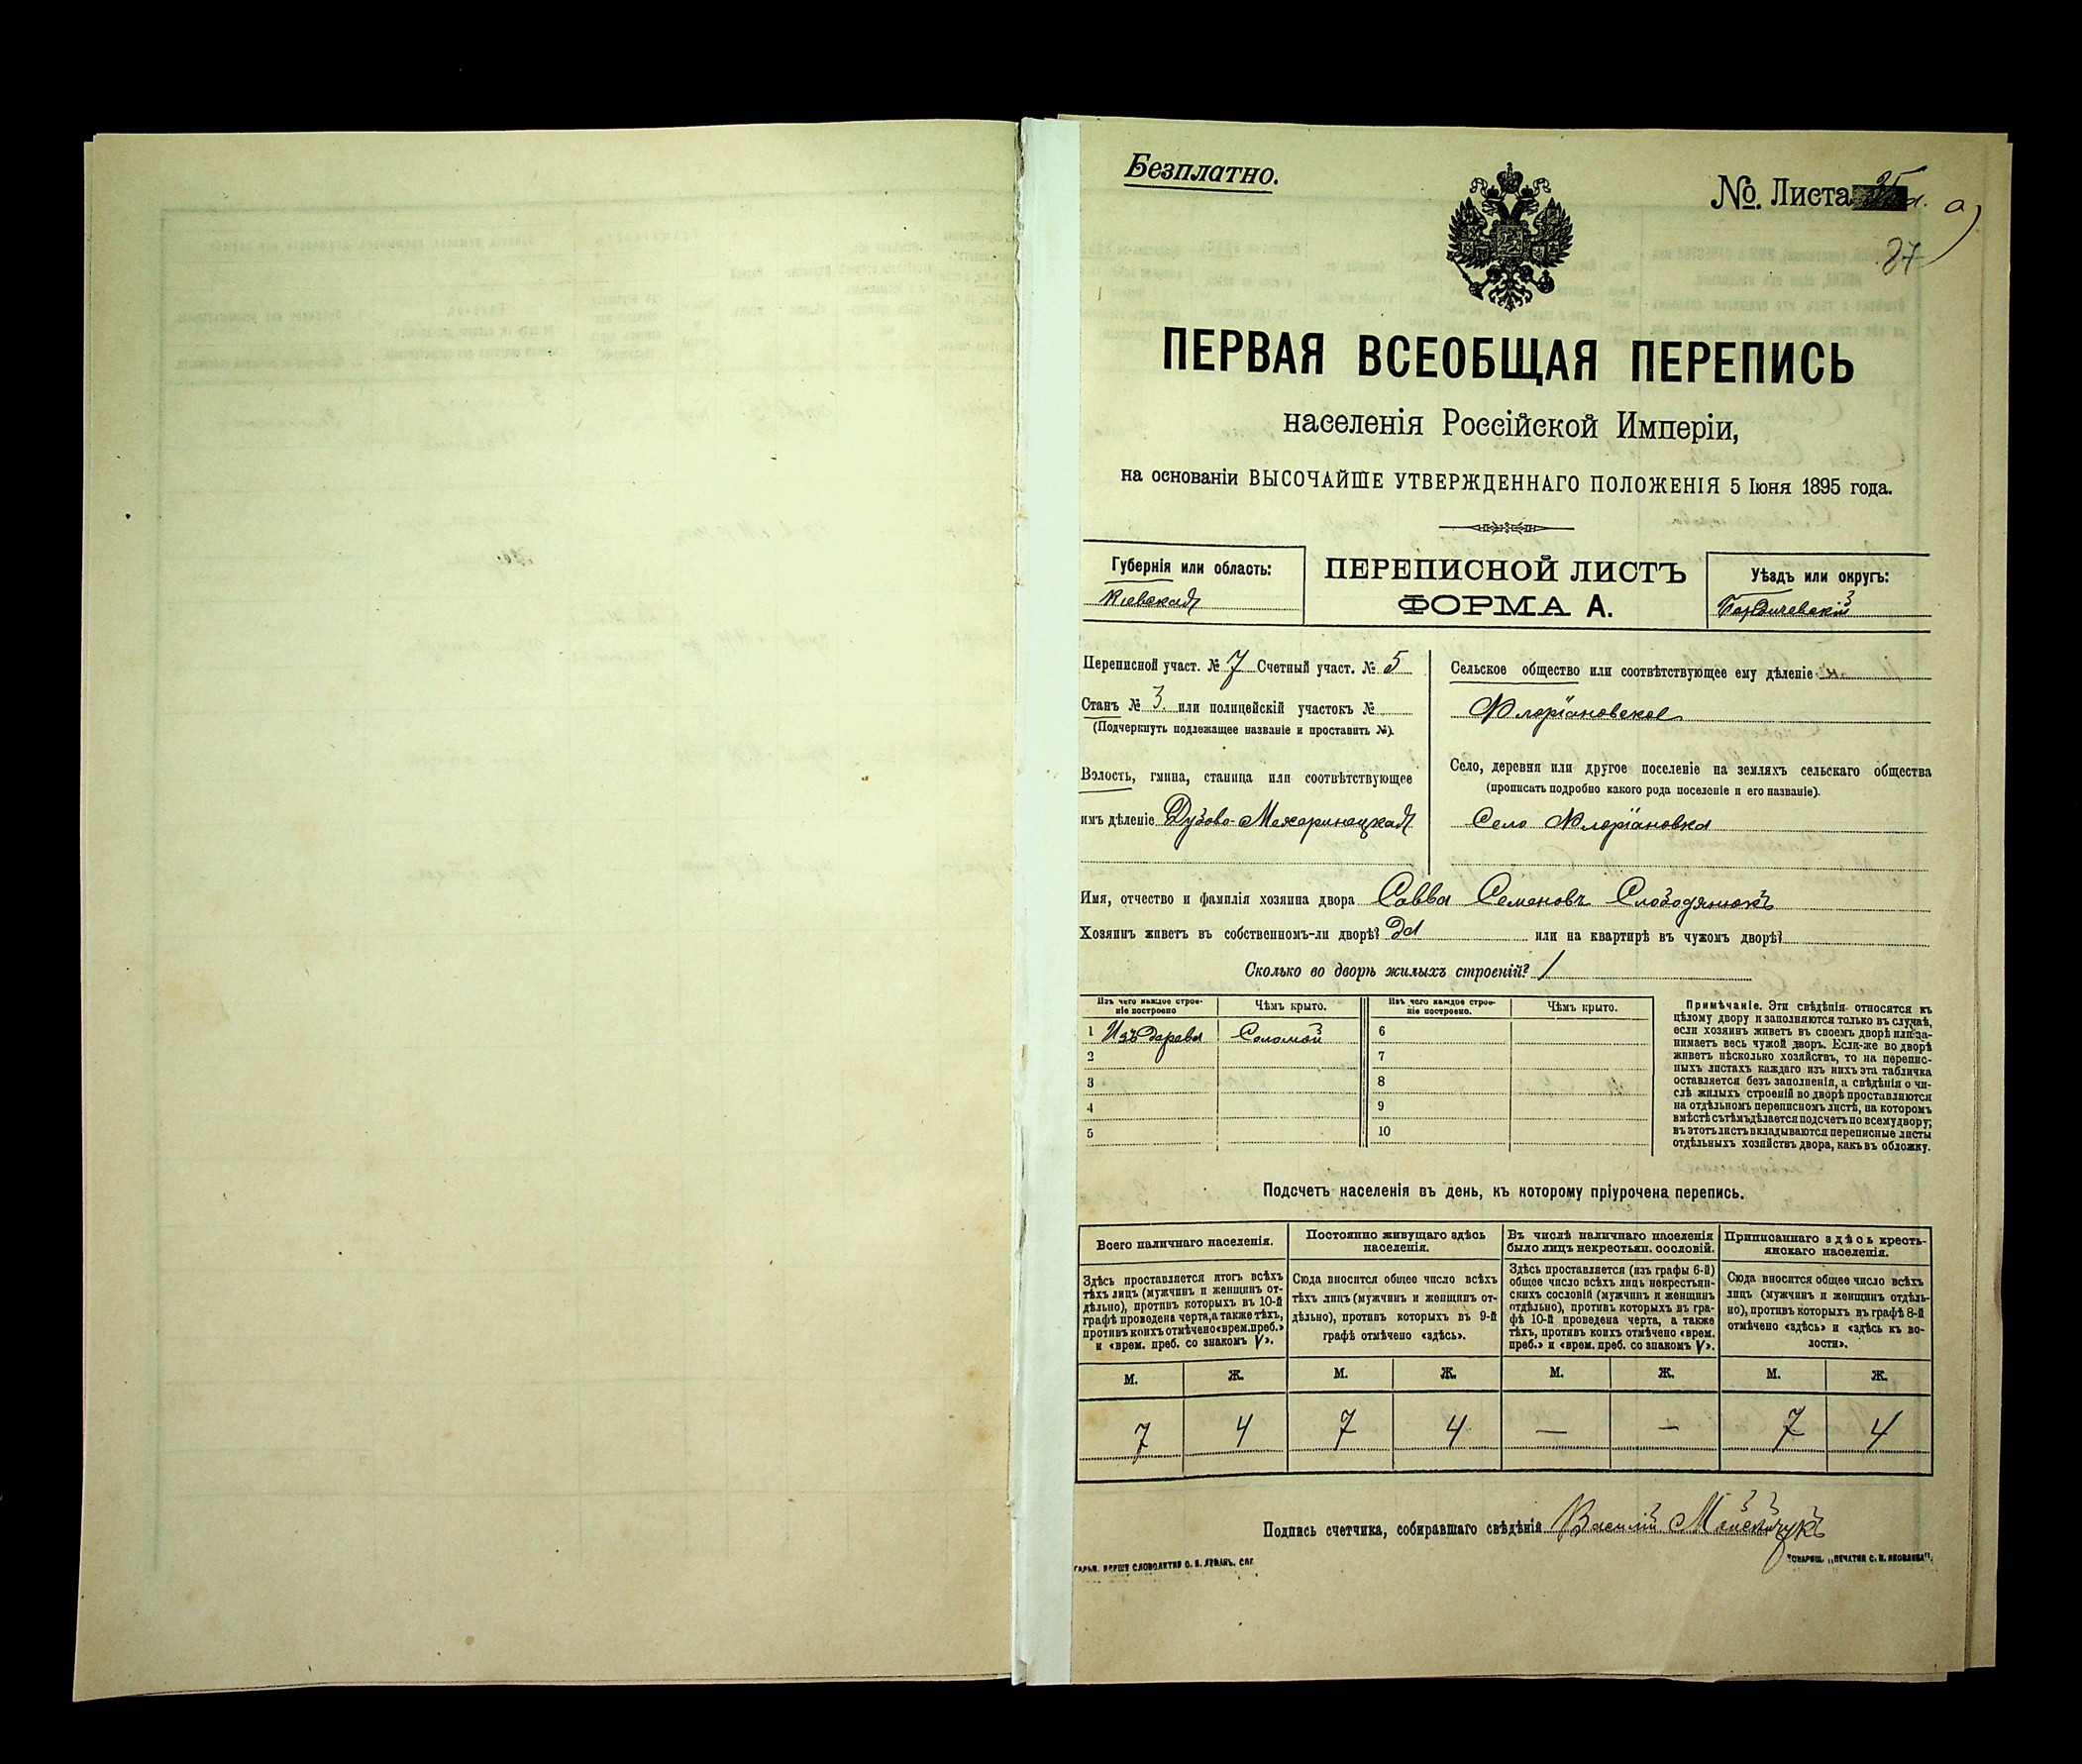 Безплатно.
№. Листа
87
ПЕРВАЯ ВСЕОБЩАЯ ПЕРЕПИСЬ
населенія Россійской Имперіи,
на основаніи ВЫСОЧАЙШЕ УТВЕРЖДЕННАГО ПОЛОЖЕНІЯ 5 Іюня 1895 года.
Губернія или область:
Кіевская
ПЕРЕПИСНОЙ ЛИСТЪ
ФОРМА А.
Уѣздъ или округъ:
Бердичевскій
Переписной участ. № 7 Счетный участ. № 5
Станъ № 3. или полицейскій участокъ №
(Подчеркнуть подлежащее названіе и проставить №).
Волость, гмина, станица или соотвѣтствующее
имъ дѣленіе Дубово-Межеринецкая
Сельское общество или соотвѣтствующее ему дѣленіе
Флоріановское
Село, деревня или другое поселеніе на земляхъ сельскаго общества
(прописать подробно какого рода поселеніе и его названіе).
Село Флоріановка
Имя, отчество и фамилія хозяина двора Савва Семеновъ Слободянюкъ
Хозяинъ живетъ въ собственномъ-ли дворѣ? Да или на квартирѣ въ чужомъ дворѣ?
Сколько во дворѣ жилыхъ строеній? 1
Изъ чего каждое строе-
ніе построено
Чѣмъ крыто.
Изъ чего каждое строе-
ніе построено.
Чѣмъ крыто.
1 Изъ дерева Соломой 6
2 7
3 8
4 9
5 10
Примѣчаніе. Эти свѣдѣнія относятся къ
цѣлому двору и заполняются только въ случаѣ,
если хозяинъ живетъ въ своемъ дворѣ или за-
нимаетъ весь чужой дворъ. Если-же во дворѣ
живетъ нѣсколько хозяйствъ, то на перепис-
ныхъ листахъ каждаго изъ нихъ эта табличка
оставляется безъ заполненія, а свѣдѣнія о чи-
слѣ жилыхъ строеній во дворѣ проставляются
на отдѣльномъ переписномъ листѣ, на которомъ
вмѣстѣ съ тѣмъ дѣлается подсчетъ по всему двору;
въ этотъ листъ вкладываются переписные листы
отдѣльныхъ хозяйствъ двора, какъ въ обложку.
Подсчетъ населенія въ день, къ которому пріурочена перепись.
Всего наличнаго населенія.
Здѣсь проставляется итогъ всѣхъ
тѣхъ лицъ (мужчинъ и женщинъ от-
дѣльно), противъ которыхъ въ 10-й
графѣ проведена черта, а также тѣхъ,
противъ коихъ отмѣчено «врем. преб.»
и «врем. преб. со знакомъ V».
Постоянно живущаго здѣсь
населенія.
Сюда вносится общее число всѣхъ
тѣхъ лицъ (мужчинъ и женщинъ от-
дѣльно), противъ которыхъ въ 9-й
графѣ отмѣчено «здѣсь».
Въ числѣ наличнаго населенія
было лицъ некрестьян. сословій.
Здѣсь проставляется (изъ графы 6-й)
общее число всѣхъ лицъ некрестьян-
скихъ сословій (мужчинъ и женщинъ
отдѣльно), противъ которыхъ въ гра-
фѣ 10-й проведена черта, а также
тѣхъ, противъ коихъ отмѣчено «врем.
преб.» и «врем. преб. со знакомъ V».
Приписаннаго здѣсь кресть-
янскаго населенія.
Сюда вносится общее число всѣхъ
лицъ (мужчинъ и женщинъ отдѣль-
но), противъ которыхъ въ графѣ 8-й
отмѣчено «здѣсь» и «здѣсь къ во-
лости».
М. Ж. М. Ж. М. Ж. М. Ж.
7 4 7 4 — — 7 4
Подпись счетчика, собиравшаго свѣдѣнія Василій